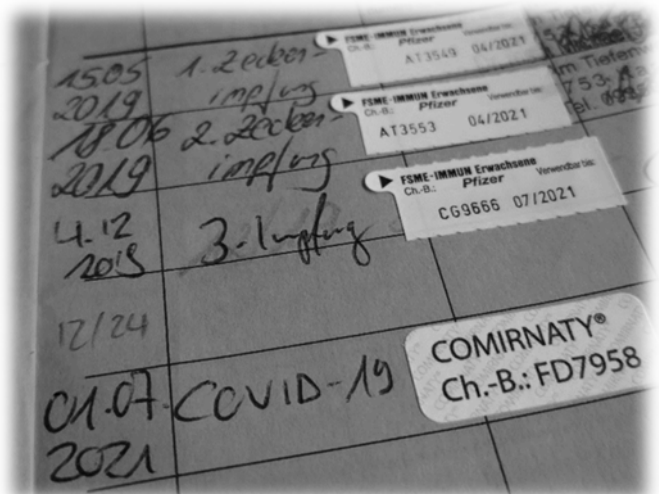 15.05 1. Zecken-
2019 impfung
FSME-IMMUN Erwachsene
Ch.-B.: Pfizer Verwendbar bis:
AT3549 04/2021
18.06 2. Zecken-
2019 impfung
FSME-IMMUN Erwachsene
Ch.-B.: Pfizer Verwendbar bis:
AT3553 04/2021
4.12 3. Impfung
2019
FSME-IMMUN Erwachsene
Ch.-B.: Pfizer Verwendbar bis:
CG9666 07/2021
12/24
01.07. COVID-19
2021
COMIRNATY®
Ch.-B.: FD7958